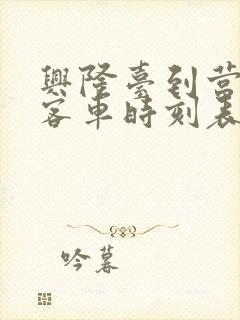 興隆臺到营
客車時刻表
吟暮